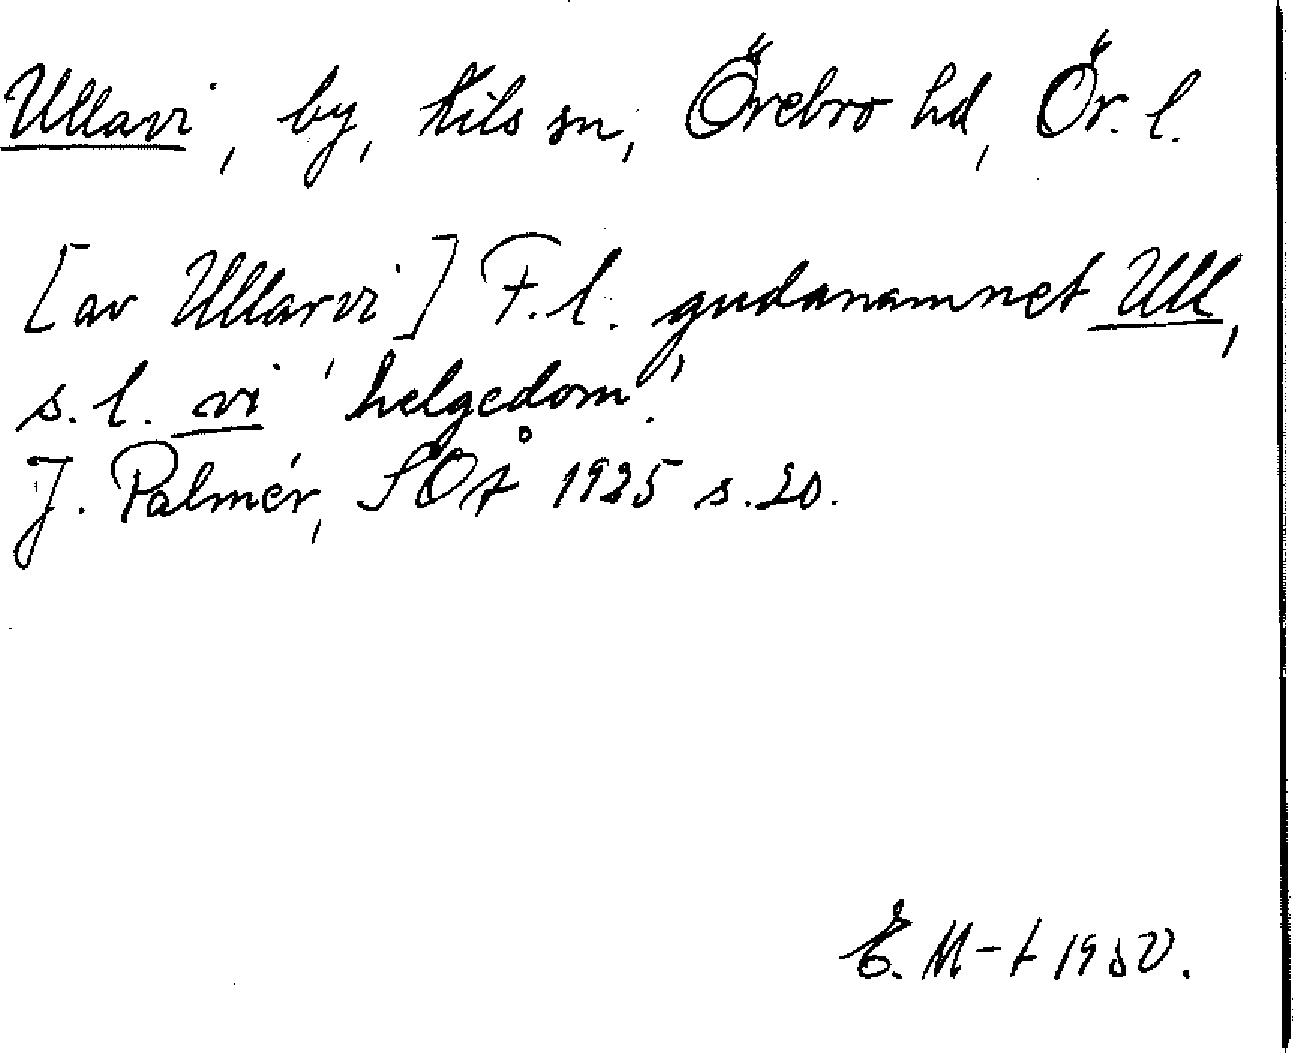 Ullavi, by, Kils sn, Örebro hd, Ör. l.
[av Ullarvi] F.l. gudanamnet Ull,
s.l. vi 'helgedom'.
J. Palmér, SOÅ 1925 s. 20.
E. M-t 1950.